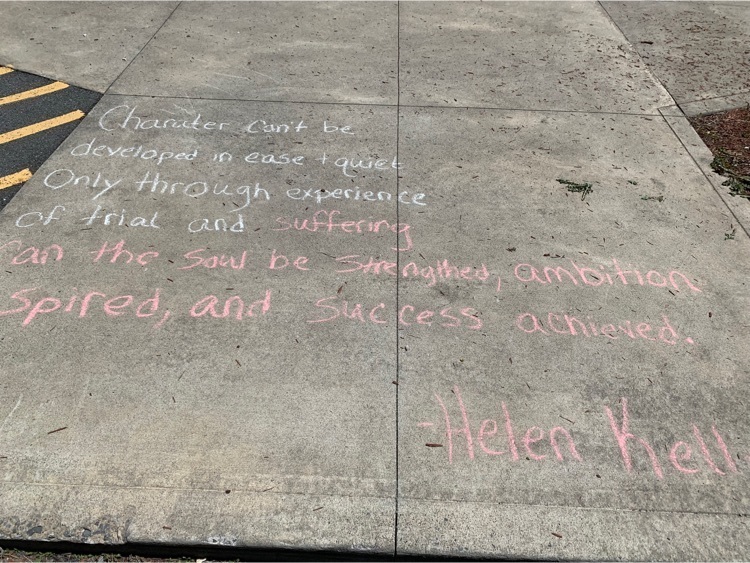 Charater can't be
developed in ease + quiet
Only through experience
of trial and suffering
Can the Soul be Strengthed, ambition
spired, and success achieved.
-Helen Kell